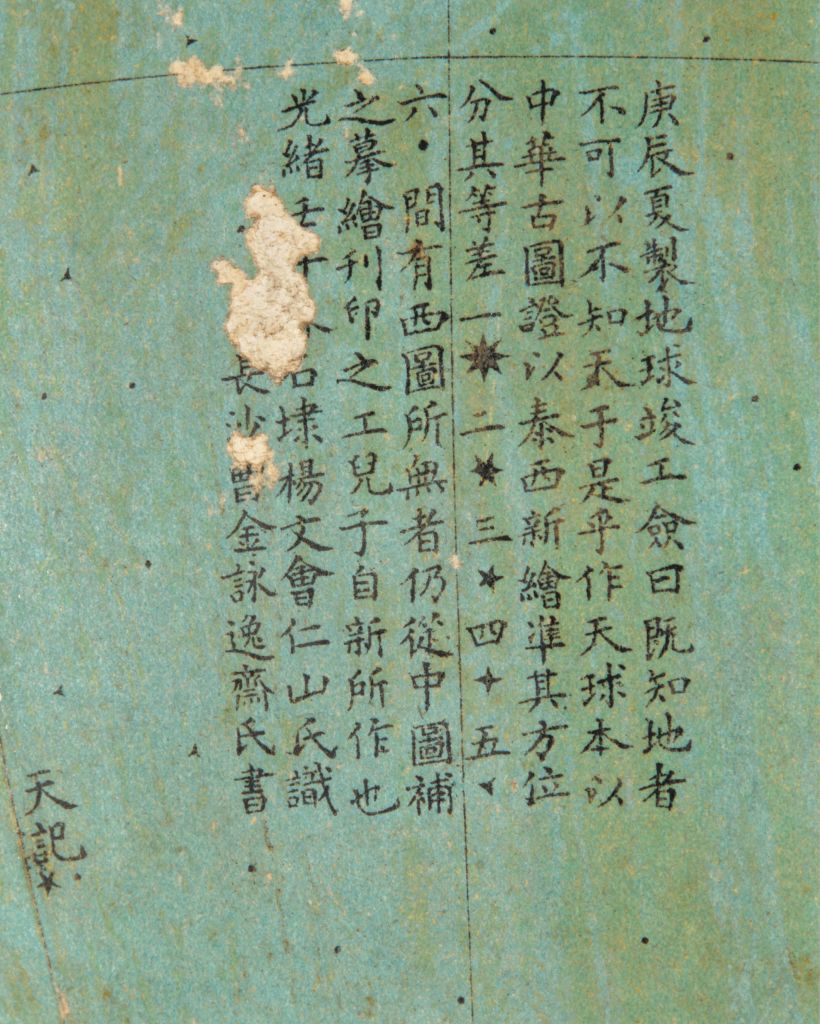 庚辰夏製地球竣工僉曰既知地者
不可以不知天于是乎作天球本以
中華古圖證以泰西新繪準其方位
分其等差一★二★三★四✦五
六・間有西圖所無者仍從中圖補
之摹繪刊印之工兒子自新所作也
光緒壬午 石埭楊文會仁山氏識
長沙曹金詠逸齋氏書
天記